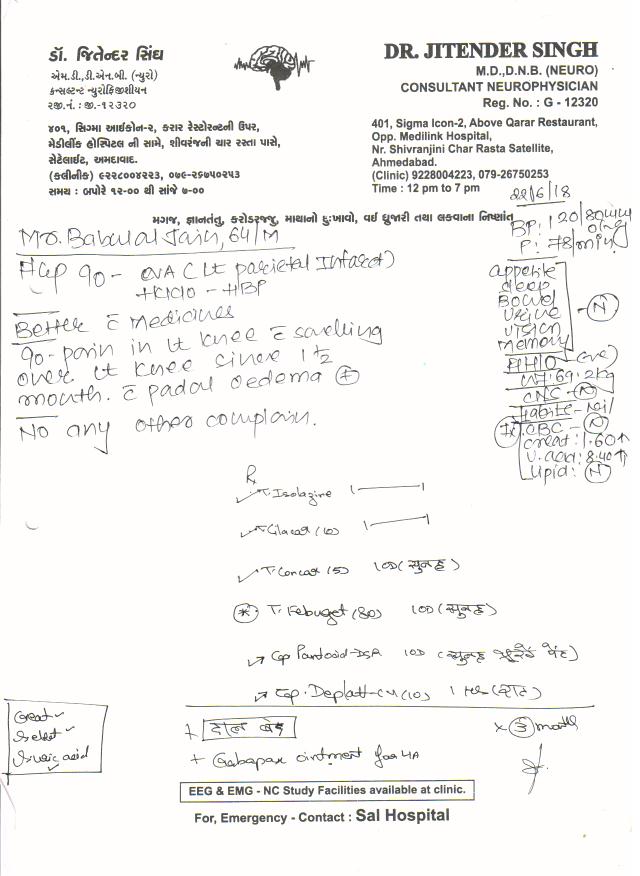 ડૉ. જિતેન્દર સિંઘ
એમ.ડી.,ડી.એન.બી. (ન્યુરો)
કન્સલ્ટન્ટ ન્યુરોફિઝીશીયન
રજી.નં. : જી.-૧૨૩૨૦
૪૦૧, સિગ્મા આઈકોન-૨, કરાર રેસ્ટોરન્ટની ઉપર,
મેડીલીંક હોસ્પિટલ ની સામે, શીવરંજની ચાર રસ્તા પાસે,
સેટેલાઈટ, અમદાવાદ.
(કલીનીક) ૯૨૨૮૦૦૪૨૨૩, ૦૭૯-૨૬૭૫૦૨૫૩
સમય : બપોરે ૧૨-૦૦ થી સાંજે ૭-૦૦
DR. JITENDER SINGH
M.D.,D.N.B. (NEURO)
CONSULTANT NEUROPHYSICIAN
Reg. No. : G - 12320
401, Sigma Icon-2, Above Qarar Restaurant,
Opp. Medilink Hospital,
Nr. Shivranjini Char Rasta Satellite,
Ahmedabad.
(Clinic) 9228004223, 079-26750253
Time : 12 pm to 7 pm
22/6/18
મગજ, જ્ઞાનતંતુ, કરોડરજ્જુ, માથાનો દુઃખાવો, વઈ ધ્રુજારી તથા લકવાના નિષ્ણાંત
Mr. Babulal Jain, 64/M
BP: 120/80
P: 78/min
CVA C Lt parietal Infarct
HBP
Better c medicines
pain in Lt knee c swelling
over Lt knee since 1½
month. c padal oedema +
No any other complain.
appetite
sleep
Bowel
urine
vision
memory
N
wt: 69.2kg
CNC - N
Habits - Nil
Ix CBC - N
creat: 1.60 ↑
U. acid: 8.40 ↑
Lipid: N
Rx
T. Isolazine 1——1
T. Concor (5) 1OD (सुबह)
T. Febuget (80) 1OD (सुबह)
Cap Pantosid-DSR 1OD (सुबह पेट)
Cap. Deplatt-CV (10) 1 HS (रात)
+ दाल बंद
x 3 months
+ ointment for LA
Creat
S. elect
S. uric acid
EEG & EMG - NC Study Facilities available at clinic.
For, Emergency - Contact : Sal Hospital